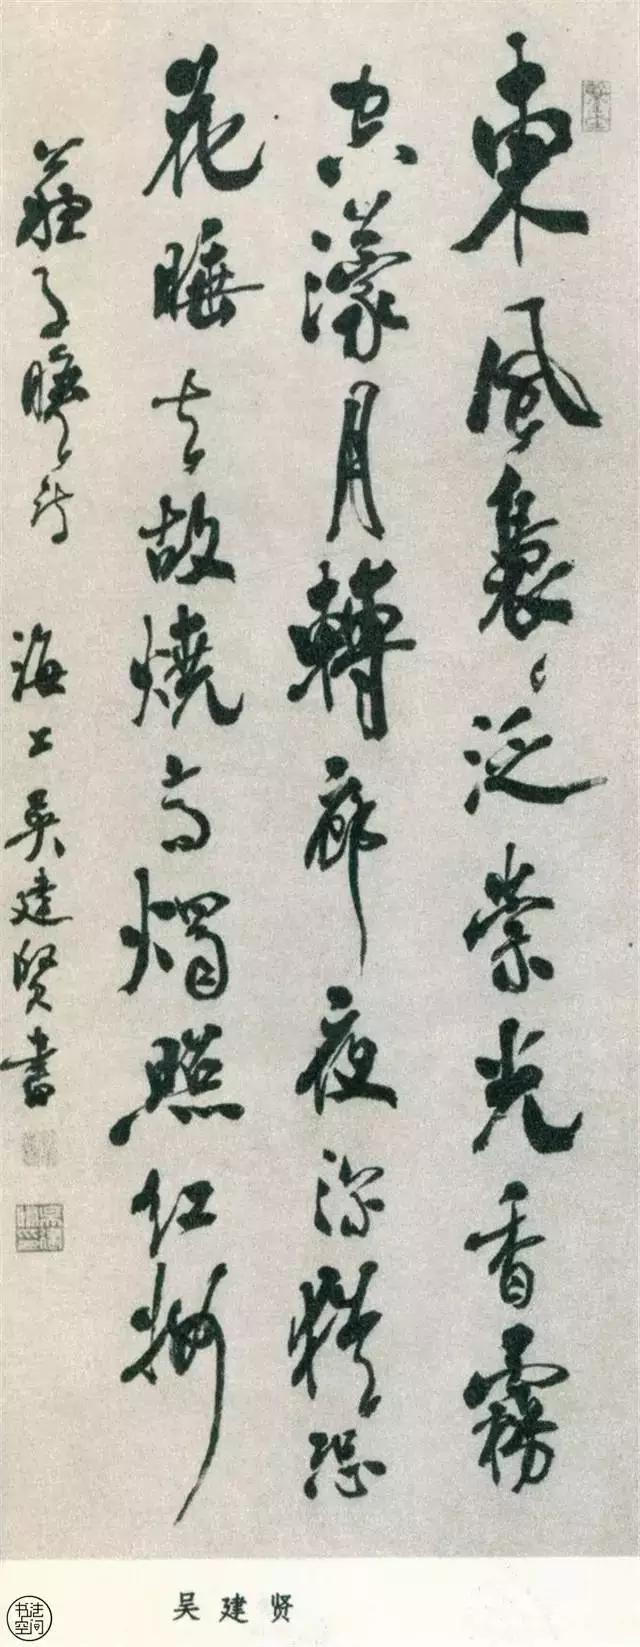 東風裊々泛崇光香霧
空濛月轉廊夜深恐
花睡去故燒高燭照紅粧
蘇子瞻詩 海上吳建賢書
吴建贤
书法
空间